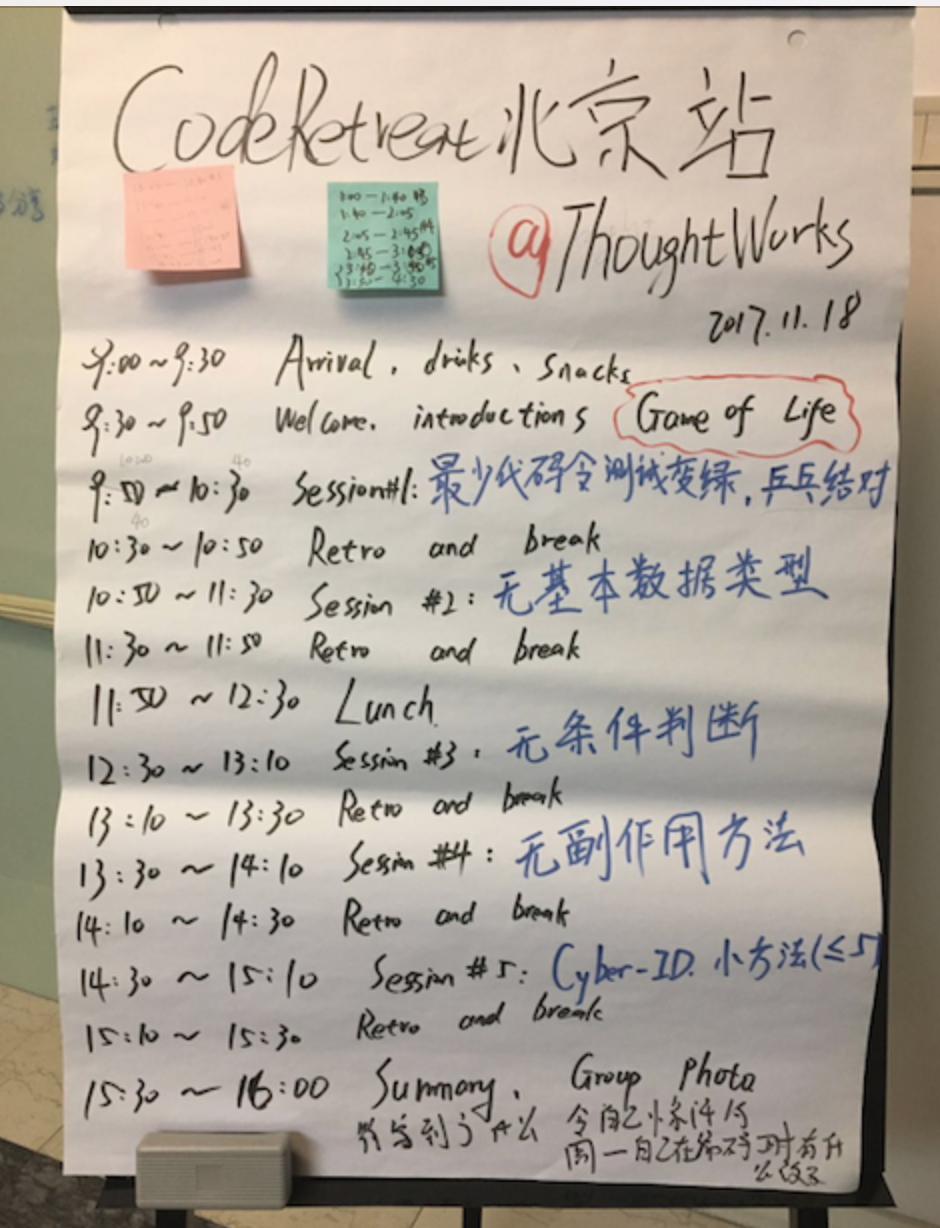 CodeRetreat 北京站
@ThoughtWorks
2017.11.18
1:00 — 1:40
1:40 — 2:05
2:05 — 2:45
9:00 ~ 9:30 Arrival, drinks、snacks
9:30 ~ 9:50 Welcome. introductions Game of Life
9:50 ~ 10:30 Session#1: 最少代码令测试变绿,乒乓结对
10:30 ~ 10:50 Retro and break
10:50 ~ 11:30 Session #2: 无基本数据类型
11:30 ~ 11:50 Retro and break
11:50 ~ 12:30 Lunch
12:30 ~ 13:10 Session #3: 无条件判断
13:10 ~ 13:30 Retro and break
13:30 ~ 14:10 Session #4: 无副作用方法
14:10 ~ 14:30 Retro and break
14:30 ~ 15:10 Session #5: Cyber-ID. 小方法(≤5)
15:10 ~ 15:30 Retro and break
15:30 ~ 16:00 Summary, Group Photo
令自己
周一自己在